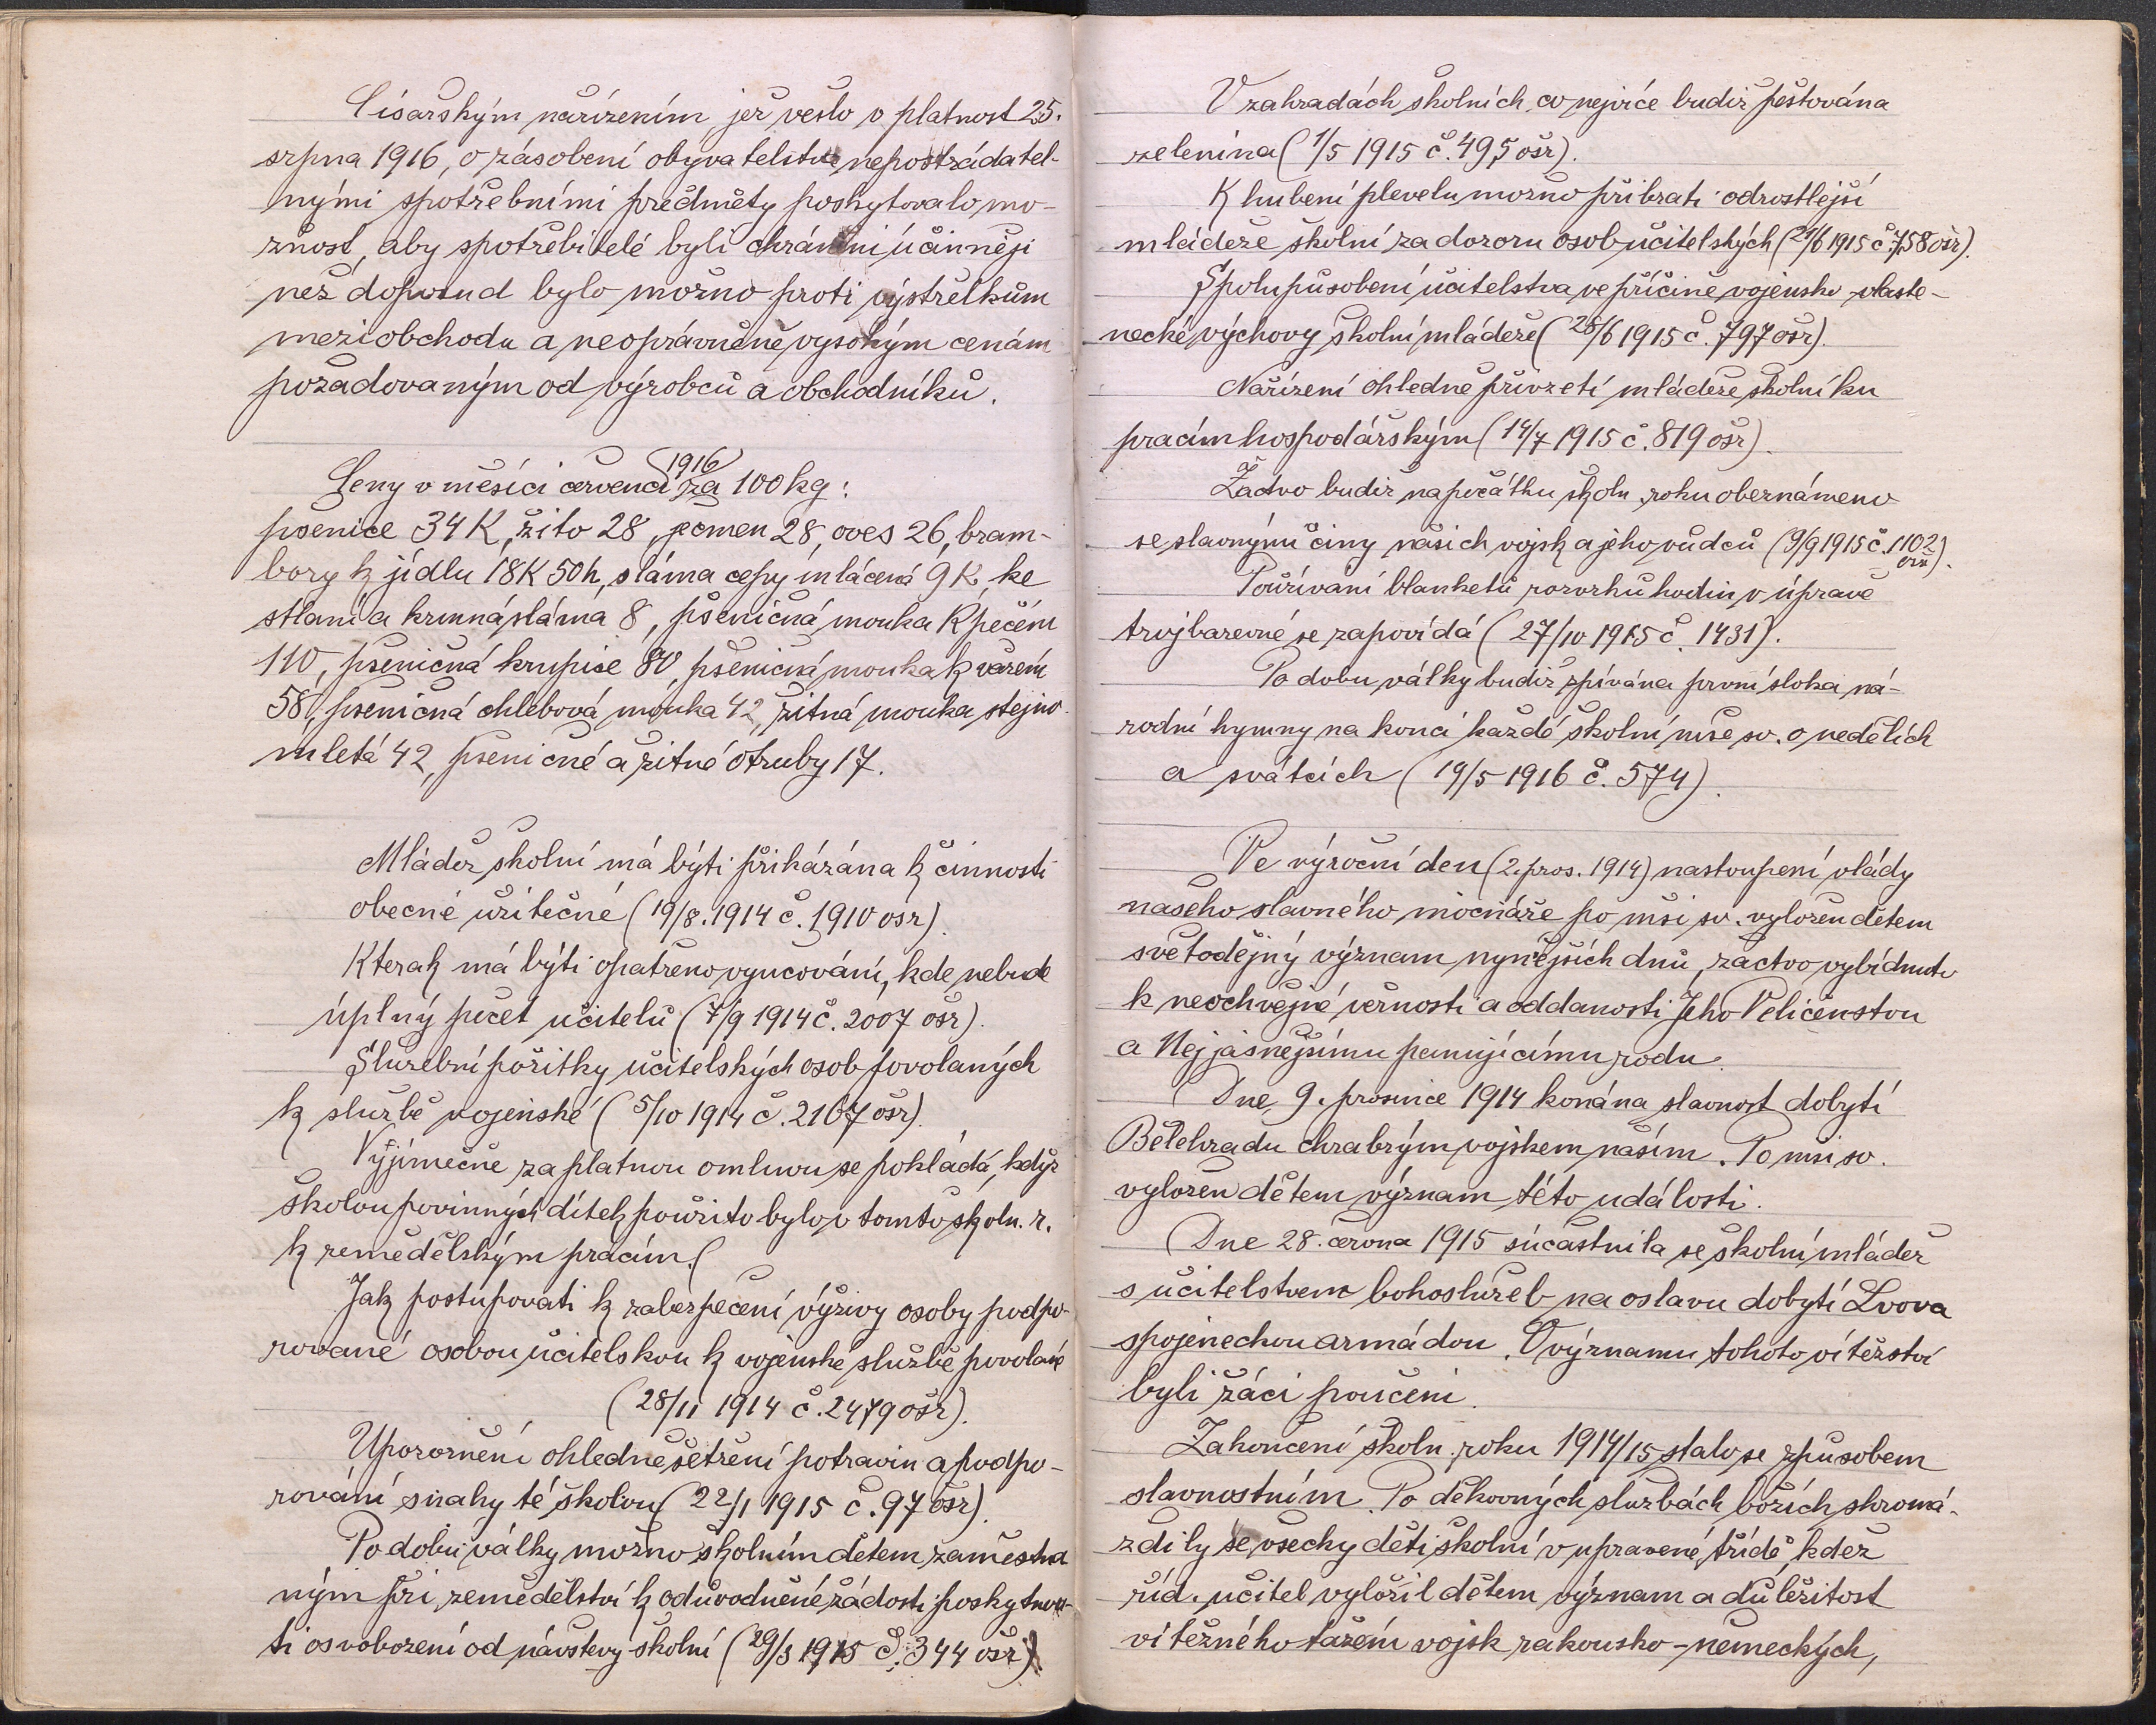 Císařským nařízením, jež vešlo v platnost 25.
srpna 1916, o zásobení obyvatelstva nepostrádatel-
nými spotřebními předměty poskytovalo mo-
žnost, aby spotřebitelé byli chráněni účinněji
než doposud bylo možno proti výstřelkům
meziobchodu a neoprávněně vysokým cenám
požadovaným od výrobců a obchodníků.
1916
Ceny v měsíci červenci za 100 kg:
pšenice 34 K, žito 28, ječmen 28, oves 26, bram-
bory k jídlu 18K 50h, sláma cepy mlácená 9 K, ke
stlaní a krmná sláma 8, pšeničná mouka k pečení
110, pšeničná krupice 80, pšeničná mouka k vaření
58, pšeničná chlebová mouka 42, žitná mouka stejno-
mletá 42, pšeničné a žitné otruby 17.
Mládež školní má býti přikázána k činnosti
obecně užitečné (19/8. 1914 č. 1910 ošr).
Kterak má býti opatřeno vyučování, kde nebude
úplný počet učitelů (7/9 1914 č. 2007 ošr).
Služební požitky učitelských osob povolaných
k službě vojenské (5/10 1914 č. 2167 ošr).
Výjimečně za platnou omluvu se pokládá, když
školou povinných dítek použito bylo v tomto školn. r.
k zemědělským pracím. (
Jak postupovati k zabezpečení výživy osoby podpo-
rované osobou učitelskou k vojenské službě povolané
(28/11 1914 č. 2479 ošr).
Upozornění ohledně šetření potravin a podpo-
rování snahy té školou (22/1 1915 č. 97 ošr).
Po dobu války možno školním dětem zaměstna
ným při zemědělství k odůvodněné žádosti poskytnou-
ti osvobození od návštěvy školní (29/3 1915 č. 344 ošr).
V zahradách školních co nejvíce budiž pěstována
zelenina (1/5 1915 č. 495 ošr).
K hubení plevelu možno přibrati odrostlejší
mládeže školní za dozoru osob učitelských (21/6 1915 č. 758 ošr).
Spolupůsobení učitelstva ve příčině vojensko-vlaste-
necké výchovy školní mládeže (25/6 1915 č. 797 ošr).
Nařízení ohledně přivzetí mládeže školní ku
pracím hospodářským (14/7 1915 č. 819 ošr).
Žactvo budiž na počátku školn. roku obeznámeno
se slavnými činy našich vojsk a jeho vůdců (9/9 1915 č. 1102
ošr).
Používání blanketů rozvrhů hodin v úpravě
trojbarevné se zapovídá (27/10 1915 č. 1431).
Po dobu války budiž zpívána první sloka ná-
rodní hymny na konci každé školní mše sv. o nedělích
a svátcích (19/5 1916 č. 574).
Ve výroční den (2. pros. 1914) nastoupení vlády
našeho slavného mocnáře po mši sv. vyložen dětem
světodějný význam nynějších dnů, žactvo vybídnuto
k neochvějné věrnosti a oddanosti Jeho Veličenstvu
a Nejjasnějšímu panujícímu rodu.
Dne 9. prosince 1914 konána slavnost dobytí
Bělehradu chrabrým vojskem naším. Po mši sv.
vyložen dětem význam této události.
Dne 28. června 1915 súčastnila se školní mládež
s učitelstvem bohoslužeb na oslavu dobytí Lvova
spojeneckou armádou. O významu tohoto vítězství
byli žáci poučeni.
Zakončení školn. roku 1914/15 stalo se způsobem
slavnostním. Po děkovných službách božích shromá-
ždily se všecky děti školní v upravené třídě, kdež
říd. učitel vyložil dětem význam a důležitost
vítězného tažení vojsk rakousko-německých,